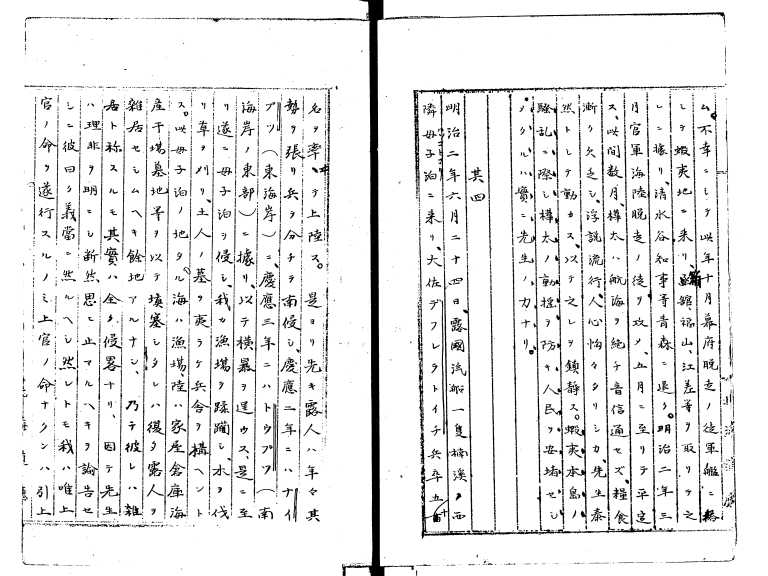 ム。不幸ニシテ此年十月幕府脱走ノ徒軍艦ニ搭
シテ蝦夷地ニ来リ、函館福山、江差等ヲ取リテ之
レニ據リ清水谷知事等青森ニ退ク。明治二年三
月官軍海陸脱走ノ徒ヲ攻メ、五月ニ至リテ平定
ス、此間数月、樺太ハ航海ヲ絶チ音信通セズ、糧食
漸ク欠乏シ、浮説流行、人心恟々タリシカ、先生泰
然トシテ動カス、以テ之レヲ鎮静ス。蝦夷本島ノ
騒乱ニ際シ樺太ノ動揺ヲ防キ、人民ヲ安堵セシ
メタルハ實ニ先生ノ力ナリ。
其四
明治二年六月二十四日、露國汽船一隻楠溪ノ西
隣母子泊ニ来リ、大佐デフレラトイチ兵卒五十
名ヲ率ヰテ上陸ス。是ヨリ先キ露人ハ年々其
勢ヲ張リ兵ヲ分チテ南侵シ、慶應二年ニハナイ
ブツ(東海岸)ニ、慶應三年ニハトウブツ(南
海岸ノ東部)ニ據リ、以テ横暴ヲ逞ウス、是ニ至
リ遂ニ母子泊ヲ侵シ、我カ漁場ヲ蹂躙シ、木ヲ伐
リ草ヲ刈リ、土人ノ墓ヲ夷ラケ兵舎ヲ構ヘント
ス。此母子泊ノ地タル、海ハ漁場、陸ハ家屋倉庫海
産干場墓地等ヲ以テ填塞シタレハ復タ露人ヲ
雑居セシムヘキ餘地アルナシ、乃テ彼レハ雑
居ト称スルモ其實ハ全ク侵畧ナリ、因テ先生
ハ理非ヲ明ニシ断然思ヒ止マルヘキヲ諭告セ
シニ彼曰ク義當ニ然ルヘシ然レトモ我ハ唯上
官ノ命ヲ遂行スルノミ上官ノ命ナクンハ引上